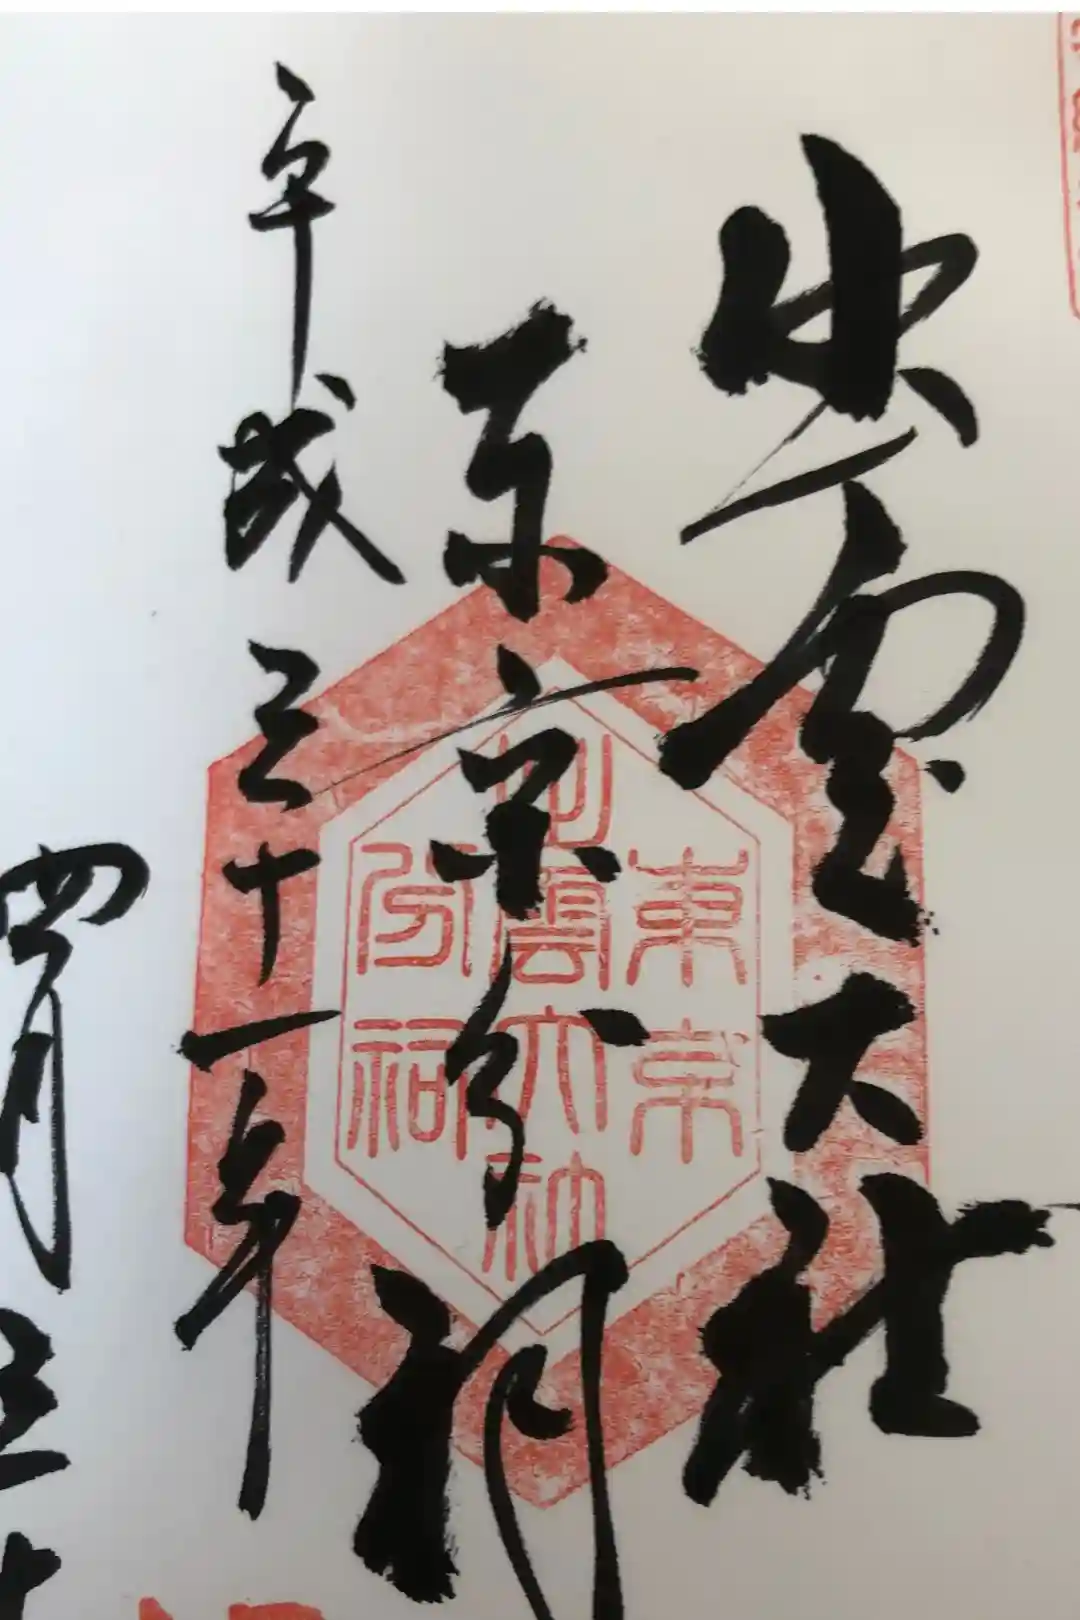 出雲大社
東京分祠
平成三十一年
四月三十
東京
出雲大社
分祠